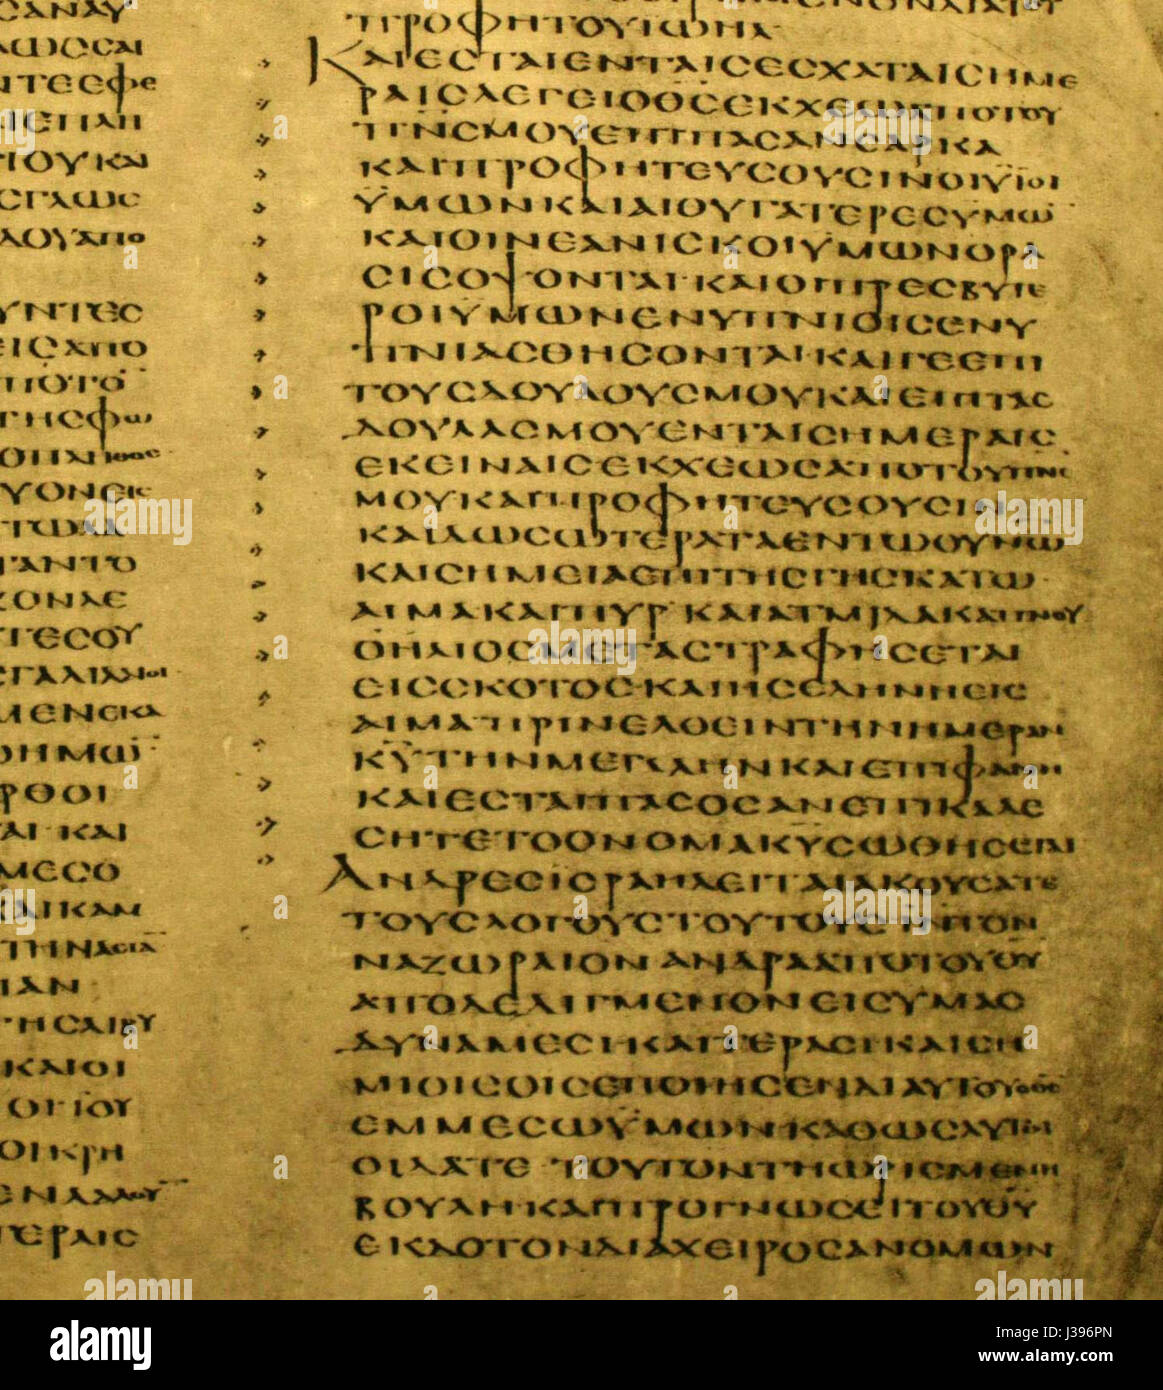 CΑΝΑΥ
ΛΩCCΑΙ
ΝΤΕΕΦΕ
ΠΟΥΚΑΙ
CΓΛΩC
ΛΟΥΑΠΟ
ΥΝΤΕC
ΕΙCΑΠΟ
ΤΗCΦΩ
ΥΟΝΕΚ
ΓΑΝΤΟ
ΖΟΝΔΕ
ΓΕCΟΥ
ΕΓΑΛΙΛΑΙΟΙ
ΜΕΝΕΚΑ
ΘΗΜΩ̅
ΡΘΟΙ
ΤΑΙ·ΚΑΙ
ΜΕCΟ
ΚΑΙΚΑΠ
ΤΗΝΑCΙΑ̅
ΙΑΝ
ΤΗCΛΙΒΥ
ΚΑΙΟΙ
ΟΙΚΡΗ
ΤΕΡΑΙC
ΠΡΟΦΗΤΟΥΙΩΗΛ·
ΚΑΙΕCΤΑΙΕΝΤΑΙCΕCΧΑΤΑΙCΗΜΕ
ΡΑΙCΛΕΓΕΙΟΘ̅C̅ΕΚΧΕΩΑΠΟΤΟΥ
Π̅Ν̅C̅ΜΟΥΕΠΙΠΑCΑΝCΑΡΚΑ
ΚΑΙΠΡΟΦΗΤΕΥCΟΥCΙΝΟΙΥΪΟΙ
ΫΜΩΝΚΑΙΑΙΘΥΓΑΤΕΡΕCΥΜΩ̅
ΚΑΙΟΙΝΕΑΝΙCΚΟΙΥΜΩΝΟΡΑ
CΙCΟΨΟΝΤΑΙ·ΚΑΙΟΙΠΡΕCΒΥΤΕ
ΡΟΙΥΜΩΝΕΝΥΠΝΙΟΙCΕΝΥ
ΠΝΙΑCΘΗCΟΝΤΑΙ·ΚΑΙΓΕΕΠΙ
ΤΟΥCΔΟΥΛΟΥCΜΟΥΚΑΙΕΠΙΤΑC
ΔΟΥΛΑCΜΟΥΕΝΤΑΙCΗΜΕΡΑΙC
ΕΚΕΙΝΑΙCΕΚΧΕΩCΑΠΟΤΟΥΠ̅Ν̅C̅
ΜΟΥ·ΚΑΙΠΡΟΦΗΤΕΥCΟΥCΙΝ
ΚΑΙΔΩCΩΤΕΡΑΤΑΕΝΤΩΟΥΝΩ
ΚΑΙCΗΜΕΙΑΕΠΙΤΗCΓΗCΚΑΤΩ·
ΑΙΜΑΚΑΙΠΥΡ·ΚΑΙΑΤΜΙΔΑΚΑΠΝΟΥ
ΟΗΛΙΟCΜΕΤΑCΤΡΑΦΗCΕΤΑΙ
ΕΙCCΚΟΤΟC·ΚΑΙΗCΕΛΗΝΗΕΙC
ΑΙΜΑΠΡΙΝΕΛΘΕΙΝΤΗΝΗΜΕΡΑΝ
Κ̅Υ̅ΤΗΝΜΕΓΑΛΗΝΚΑΙΕΠΙΦΑΝΗ
ΚΑΙΕCΤΑΙΠΑCΟCΑΝΕΠΙΚΑΛΕ
CΗΤΕΤΟΟΝΟΜΑΚ̅Υ̅CΩΘΗCΕΤΑΙ
ΑΝΔΡΕCΙCΡΑΗΛΕΙΤΑΙΑΚΟΥCΑΤΕ
ΤΟΥCΛΟΓΟΥCΤΟΥΤΟΥCΙ̅Ν̅ΤΟΝ
ΝΑΖΩΡΑΙΟΝΑΝΔΡΑΑΠΟΤΟΥΘ̅Υ̅
ΑΠΟΔΕΔΙΓΜΕΝΟΝΕΙCΥΜΑC
ΔΥΝΑΜΕCΙΚΑΙΤΕΡΑCΙΚΑΙCΗ
ΜΙΟΙCΟΙCΕΠΟΙΗCΕΝΔΙΑΥΤΟΥΟΘ̅C̅
ΕΜΜΕCΩΫΜΩΝΚΑΘΩCΑΥΤΟΙ
ΟΙΔΑΤΕ ΤΟΥΤΟΝΤΗΩΡΙCΜΕΝΗ
ΒΟΥΛΗ·ΚΑΙΠΡΟΓΝΩCΕΙΤΟΥΘ̅Υ̅
ΕΚΔΟΤΟΝΔΙΑΧΕΙΡΟCΑΝΟΜΩΝ
alamy stock photo
J396PN
www.alamy.com